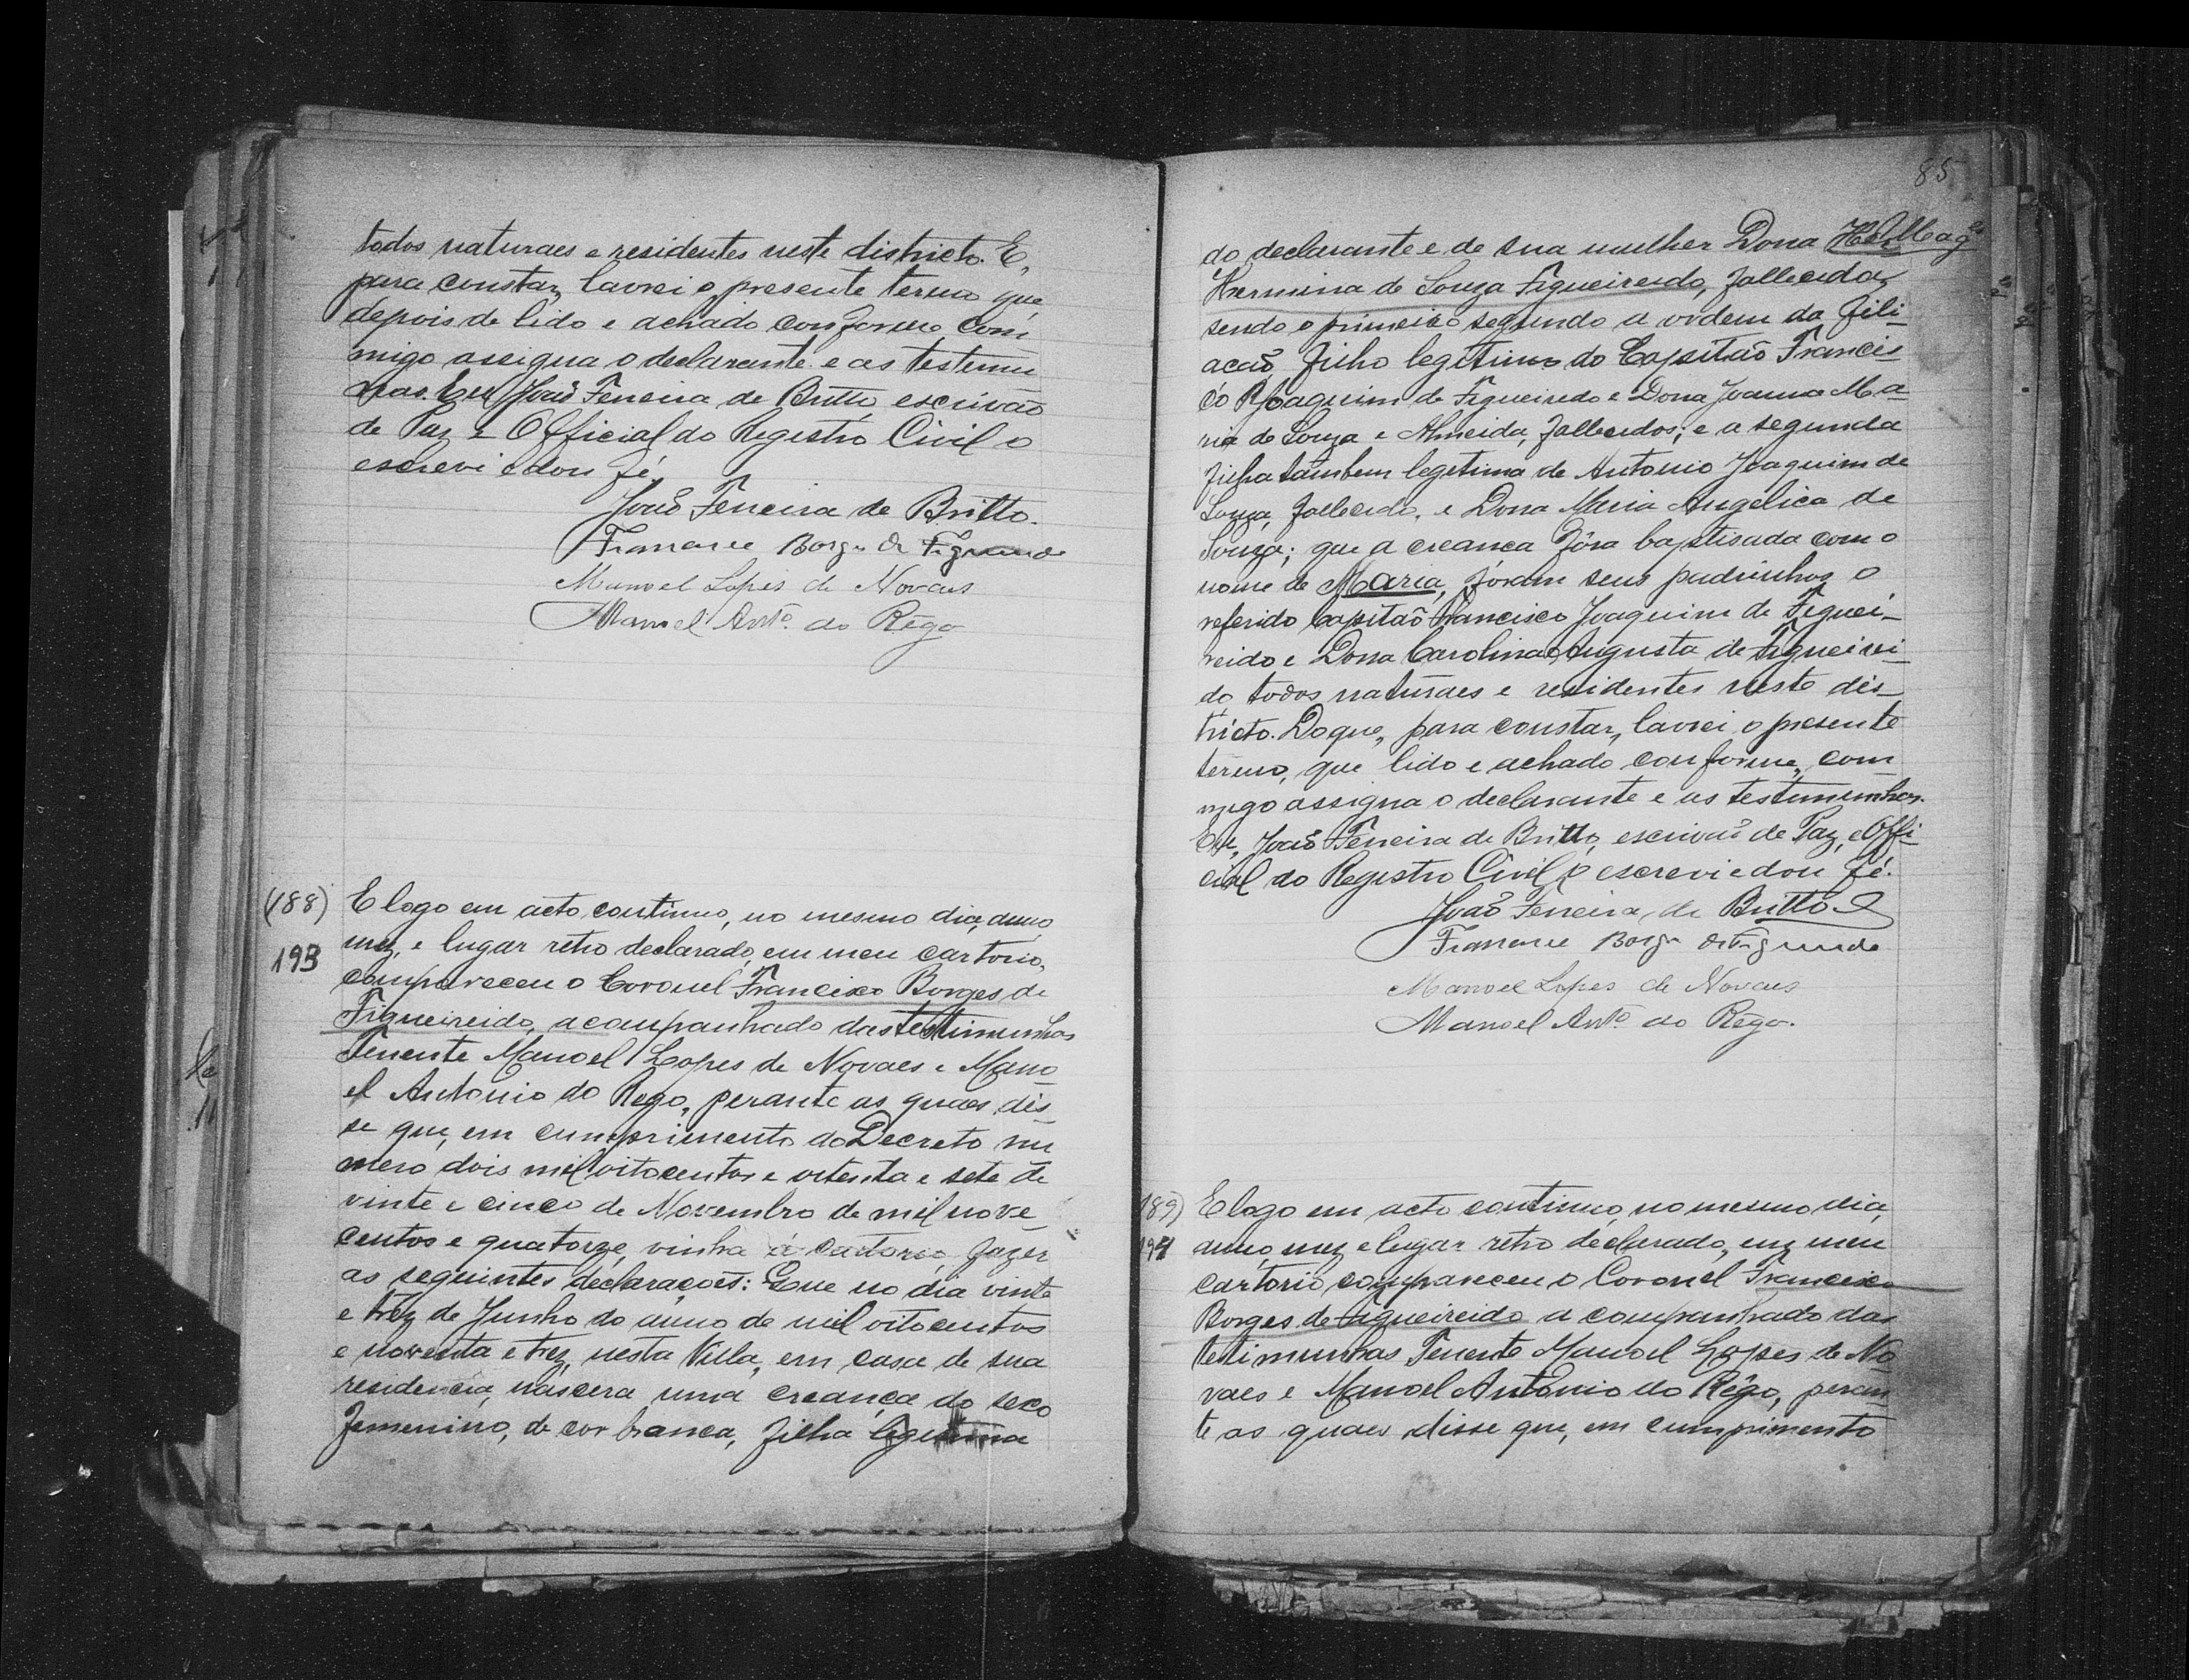 todos naturaes e residentes neste districto. E,
para constar, lavrei o presente termo que
depois de lido e achado conforme com
migo assigna o declarante e as testemu
nhas. Eu João Ferreira de Britto, escrivão
de Paz e Official do Registro Civil o
escrevi e dou fé.
João Ferreira de Britto.
Francisco Borges de Figueiredo
Manoel Lopes de Novaes
Manoel Antº. do Rego
(188) E logo em acto continuo, no mesmo dia, anno
193 mez, e lugar retro declarado, em meu cartorio,
compareceu o Coronel Francisco Borges de
Figueireido, acompanhado das testimunhas
Tenente Manoel Lopes de Novaes e Mano
el Antonio do Rego, perante as quaes dis
se que, em cumprimento do Decreto nu
mero dois mil oitocentos e oitenta e sete de
vinte e cinco de Novembro de mil nove
centos e quatorze, vinha á cartorio fazer
as seguintes declarações: Que no dia vinte
e trez de Junho do anno de mil oitocentos
e noventa e trez, nesta Villa, em casa de sua
residencia, nascera uma creança do sexo
femenino, de cor branca, filha legitima
85
do declarante e de sua mulher Dona
Hermina de Souza Figueireido, fallecida,
sendo o primeiro segundo a ordem da fili-
acão, filho legitimo do Capitão Francis
co Joaquim de Figueiredo e Dona Joanna Ma
ria de Souza e Almeida, fallecidos; e a segunda
filha tambem legitima de Antonio Joaquim de
Souza, fallecido, e Dona Maria Angelica de
Souza; que a creanca fôra baptisada com o
nome de Maria, fôram seus padrinhos o
referido Capitão Francisco Joaquim de Figuei-
reido e Dona Carolina Augusta de Figueirei
do todos naturaes e residentes neste dis-
tricto. Do que, para constar, lavrei o presente
termo, que lido e achado conforme, com
migo assigna o declarante e as testimunhas.
Eu, João Ferreira de Britto, escrivão de Paz, e Offi-
cial do Registro Civil o escrevi e dou fé.
João Ferreira de Britto
Francisco Borges de Figueiredo
Manoel Lopes de Novaes
Manoel Antº. do Rego.
189) E logo em acto continuo, no mesmo dia,
194 anno, mez e lugar retro declarado, em meu
cartorio compareceu o Coronel Francisco
Borges de Figueireido a companhado das
testimunhas Tenente Manoel Lopes de No
vaes e Manoel Antonio do Rêgo, peran
te as quaes disse que, em cumprimento